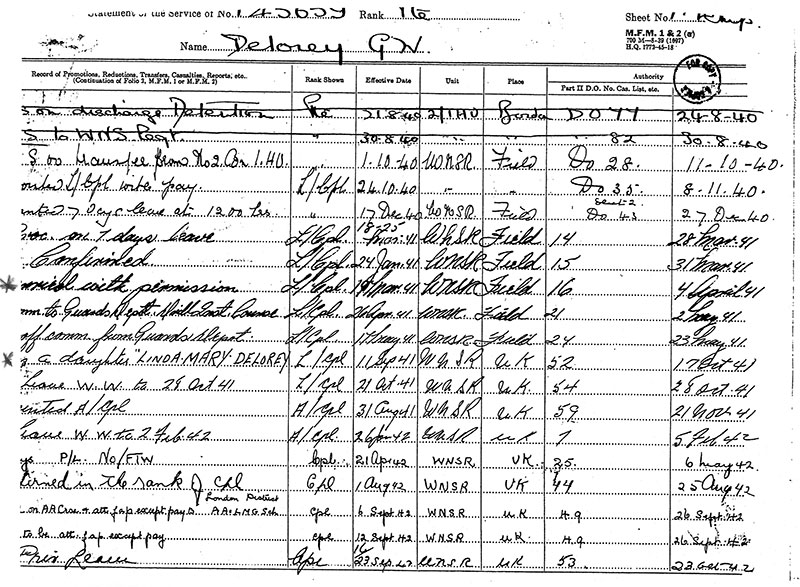 Statement of the Service of No. Rank Pte Sheet No.
M.F.M. 1 & 2 (a)
700 M-8-39 (1697)
H.Q. 1772-45-18
Name Delorey G W.
Record of Promotions, Reductions, Transfers, Casualties, Reports, etc., Rank Shown Effective Date Unit Place Authority
(Continuation of Folio 3, M.F.M. 1 or M.F.M. 2) Part II D.O. No. Cas. List, etc.
S on discharge Detention Pte 21-8-40 Borden DO 77 24-8-40
S to WNS Regt " 30-8-40 " " 82 30-8-40
S on transfer from No 2 1-10-40 WNSR Field Do 28. 11-10-40.
L/Cpl with pay. L/Cpl. 24.10.40 " " Do 35 8-11.40.
7 days leave at 1200 hrs " 17 Dec 40 WNSR Field Do 43 27 Dec 40
on 7 days leave L/Cpl. Mar. 41 WNSR Field 14 28 Mar. 41
Confirmed L/Cpl. 24 Jan. 41 WNSR Field 15 31 Mar. 41
with permission L/Cpl. Mar. 41 WNSR Field 16 4 April 41
to Guards Depot Course L/Cpl. WNSR Field 21 2 May 41
off comm. from Guards Depot. L/Cpl 17 May 41 WNSR Field 24 23 May 41
a daughter "LINDA-MARY-DELOREY L/Cpl 11 Sep 41 WNSR UK 52 17 Oct 41
leave W.W. to 29 Oct 41 L/Cpl 21 Oct 41 WNSR UK 54 28 Oct 41
A/Cpl A/Cpl 31 Aug 41 WNSR UK 59 21 Nov 41
leave W W to 2 Feb 42 A/Cpl 26 Jan 42 WNSR UK 7 5 Feb 42
P/L. No/FTW Cpl. 21 Ap 42 WNSR UK 35 6 May 42
in the rank of Cpl Cpl 1 Aug 42 WNSR UK 44 25 Aug 42
London District
on AA Crse & att. f ap except pay to AA & LMG Sch Cpl 6 Sept 42 WNSR UK 49 26 Sept 42
to be att. f ap except pay Cpl 12 Sept 42 WNSR UK 49 26 Sept 42
Priv. Leave Cpl 23 Sep 42 WNSR UK 53 23 Oct 42